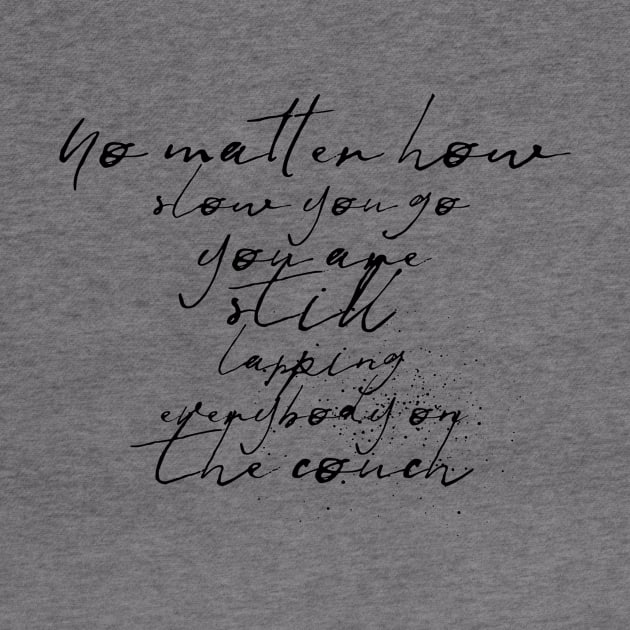 No matter how
slow you go
you are
still
lapping
everybody on
the couch